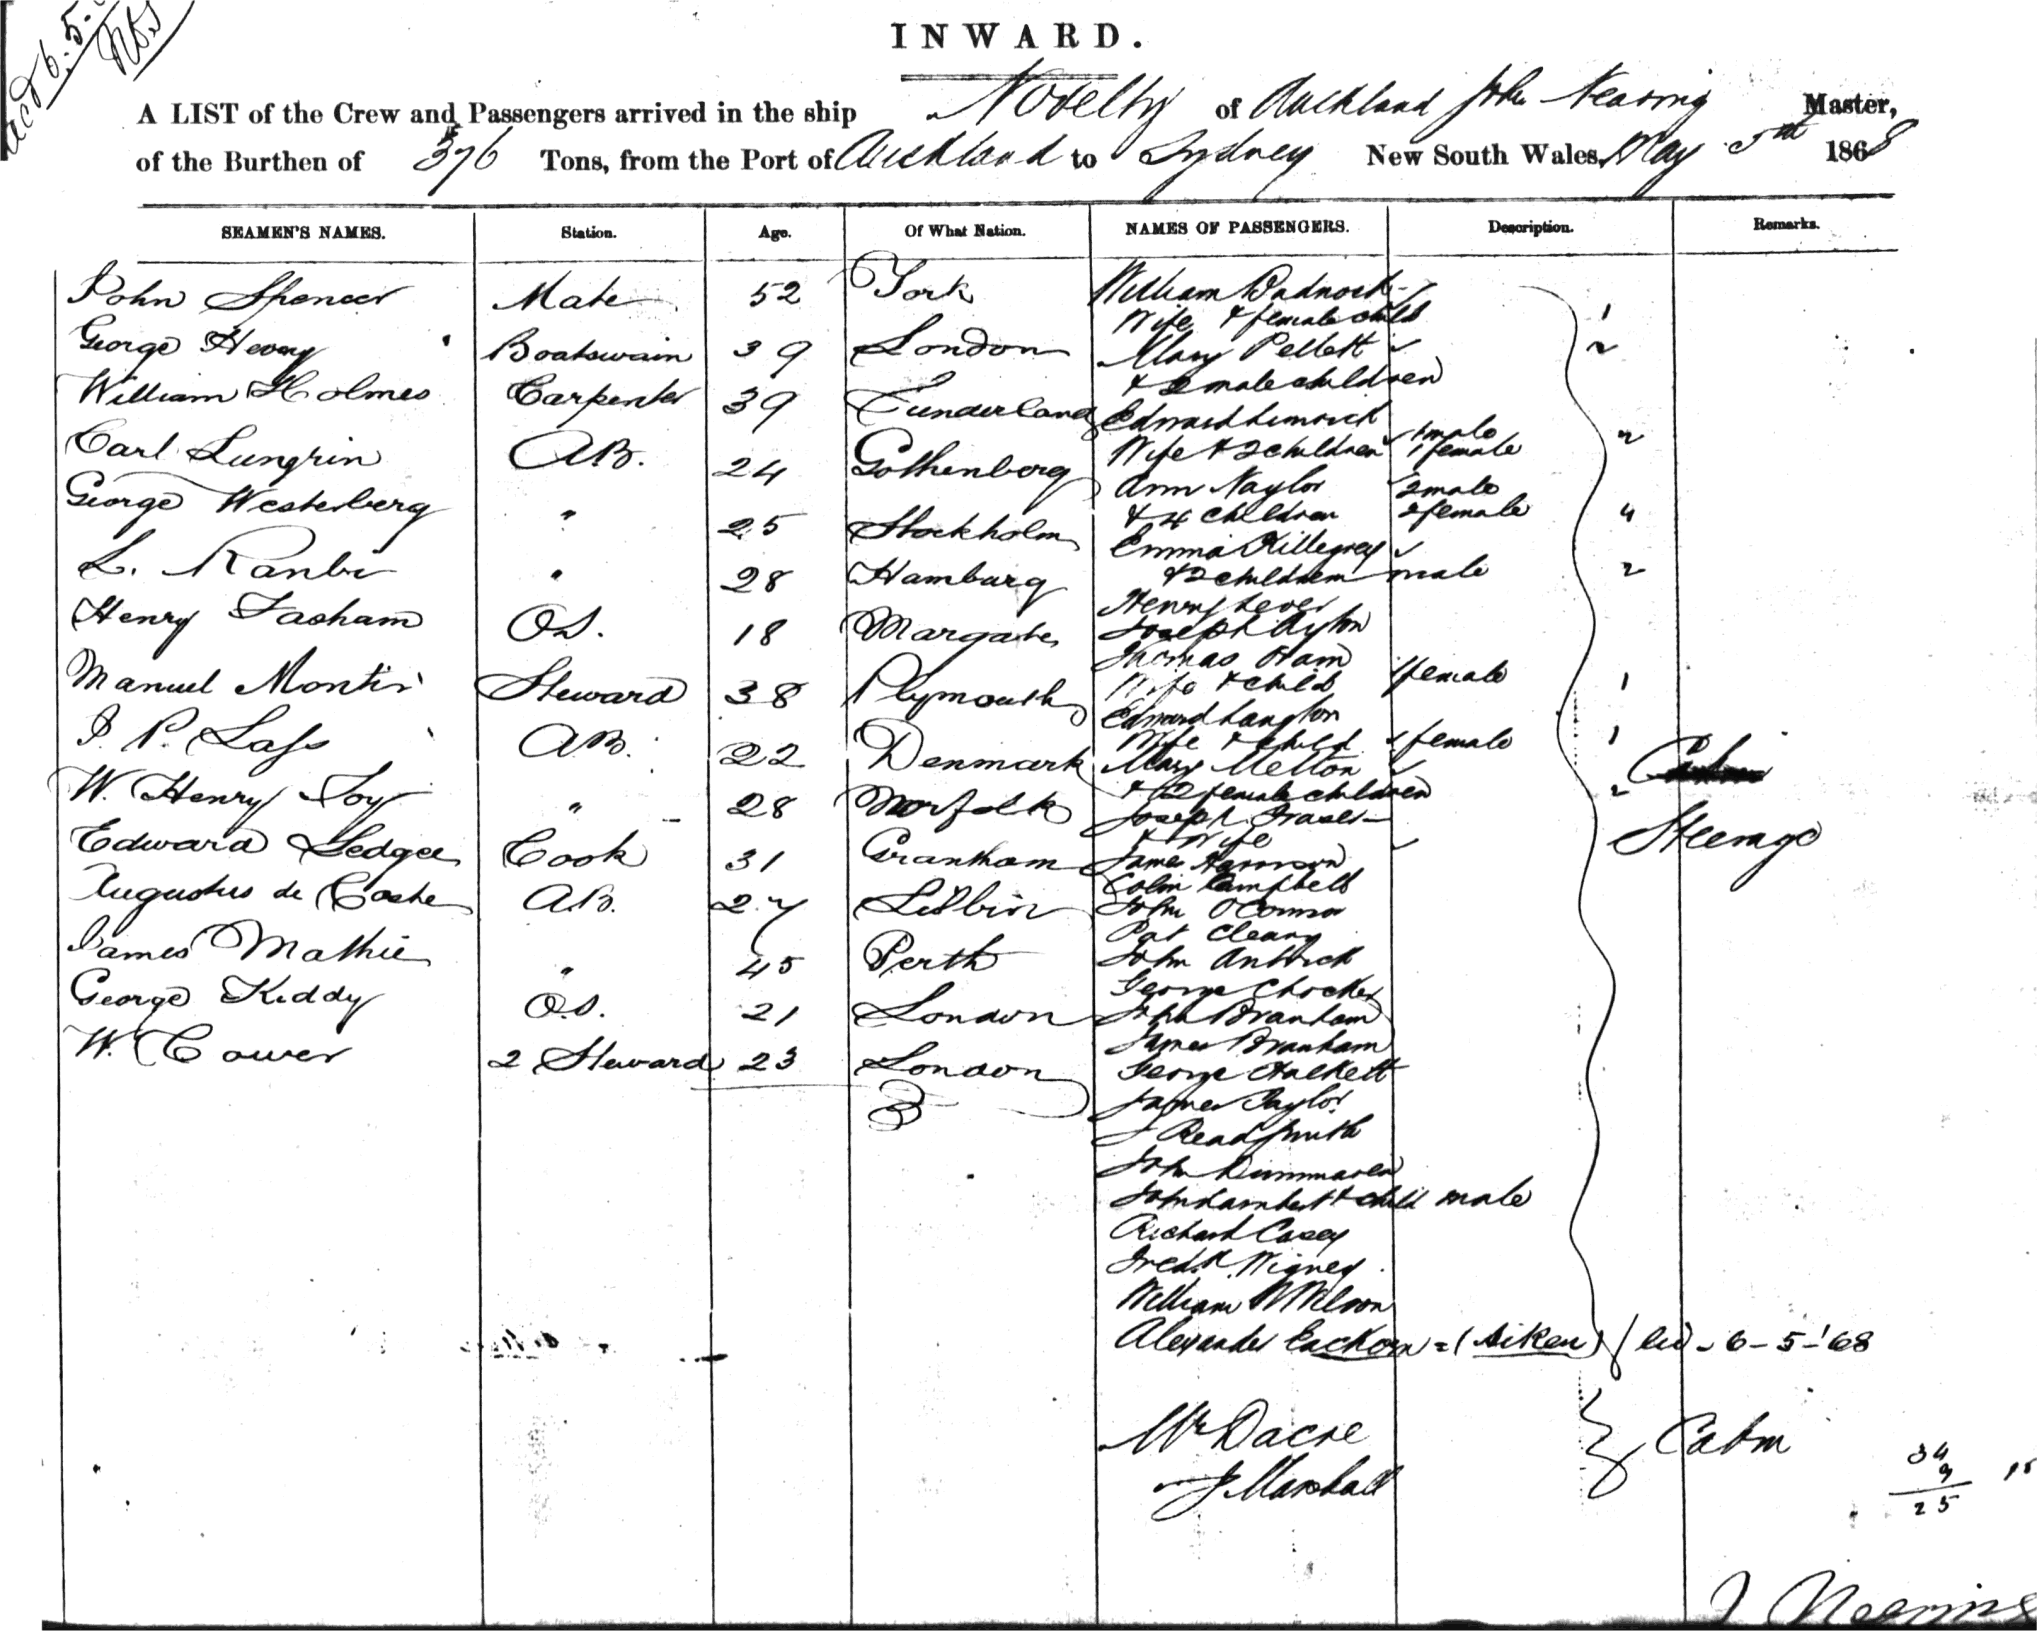 INWARD.
A LIST of the Crew and Passengers arrived in the ship Novelty of Auckland John Nearing Master,
of the Burthen of 376 Tons, from the Port of Auckland to Sydney New South Wales, May 5th 1868
SEAMEN'S NAMES. Station. Age. Of What Nation. NAMES OF PASSENGERS. Description. Remarks.
John Spencer Mate 52 York
George Henry Boatswain 39 London
William Holmes Carpenter 39 Sunderland
Carl Lungrin AB. 24 Gothenberg
George Westerberg " 25 Stockholm
L. Ranbe " 28 Hamburg
Henry Fasham OS. 18 Margate
Manuel Montis Steward 38 Plymouth
J. P. Lass AB. 22 Denmark
W. Henry Joy " 28 Norfolk
Edward Ledger Cook 31 Grantham
Augustus de Coste A.B. 27 Lisbin
James Mathie " 45 Perth
George Kiddy O.S. 21 London
W. Cower 2 Steward 23 London
William Badnock
Wife & female child 1
Mary Pellett 2
& 2 male children
Edward
Wife & 2 children 1 male 1 female 2
Ann Naylor 2 male
& 4 children 2 female 4
Emma Killegrey
& 2 children male 2
Henry Lever
Joseph Ayton
Thomas Oram
Wife & child 1 female 1
Edward Langton
Wife & child 1 female 1
Mary Melton
& 2 female children 2
Joseph Fraser
& Wife
Steerage
James Harrison
Colin Campbell
John O'Connor
Pat Cleary
John
George Chocker
John Branham
James Branham
George Halkett
James Taylor
J Readsmith
John
John Lambert & child male
Richard Casey
Fredk Wigney
William Wilson
Alexander Eackorn = (Aiken) 6-5-'68
Mr Dacre
J Marshall
Cabin
34
9
25